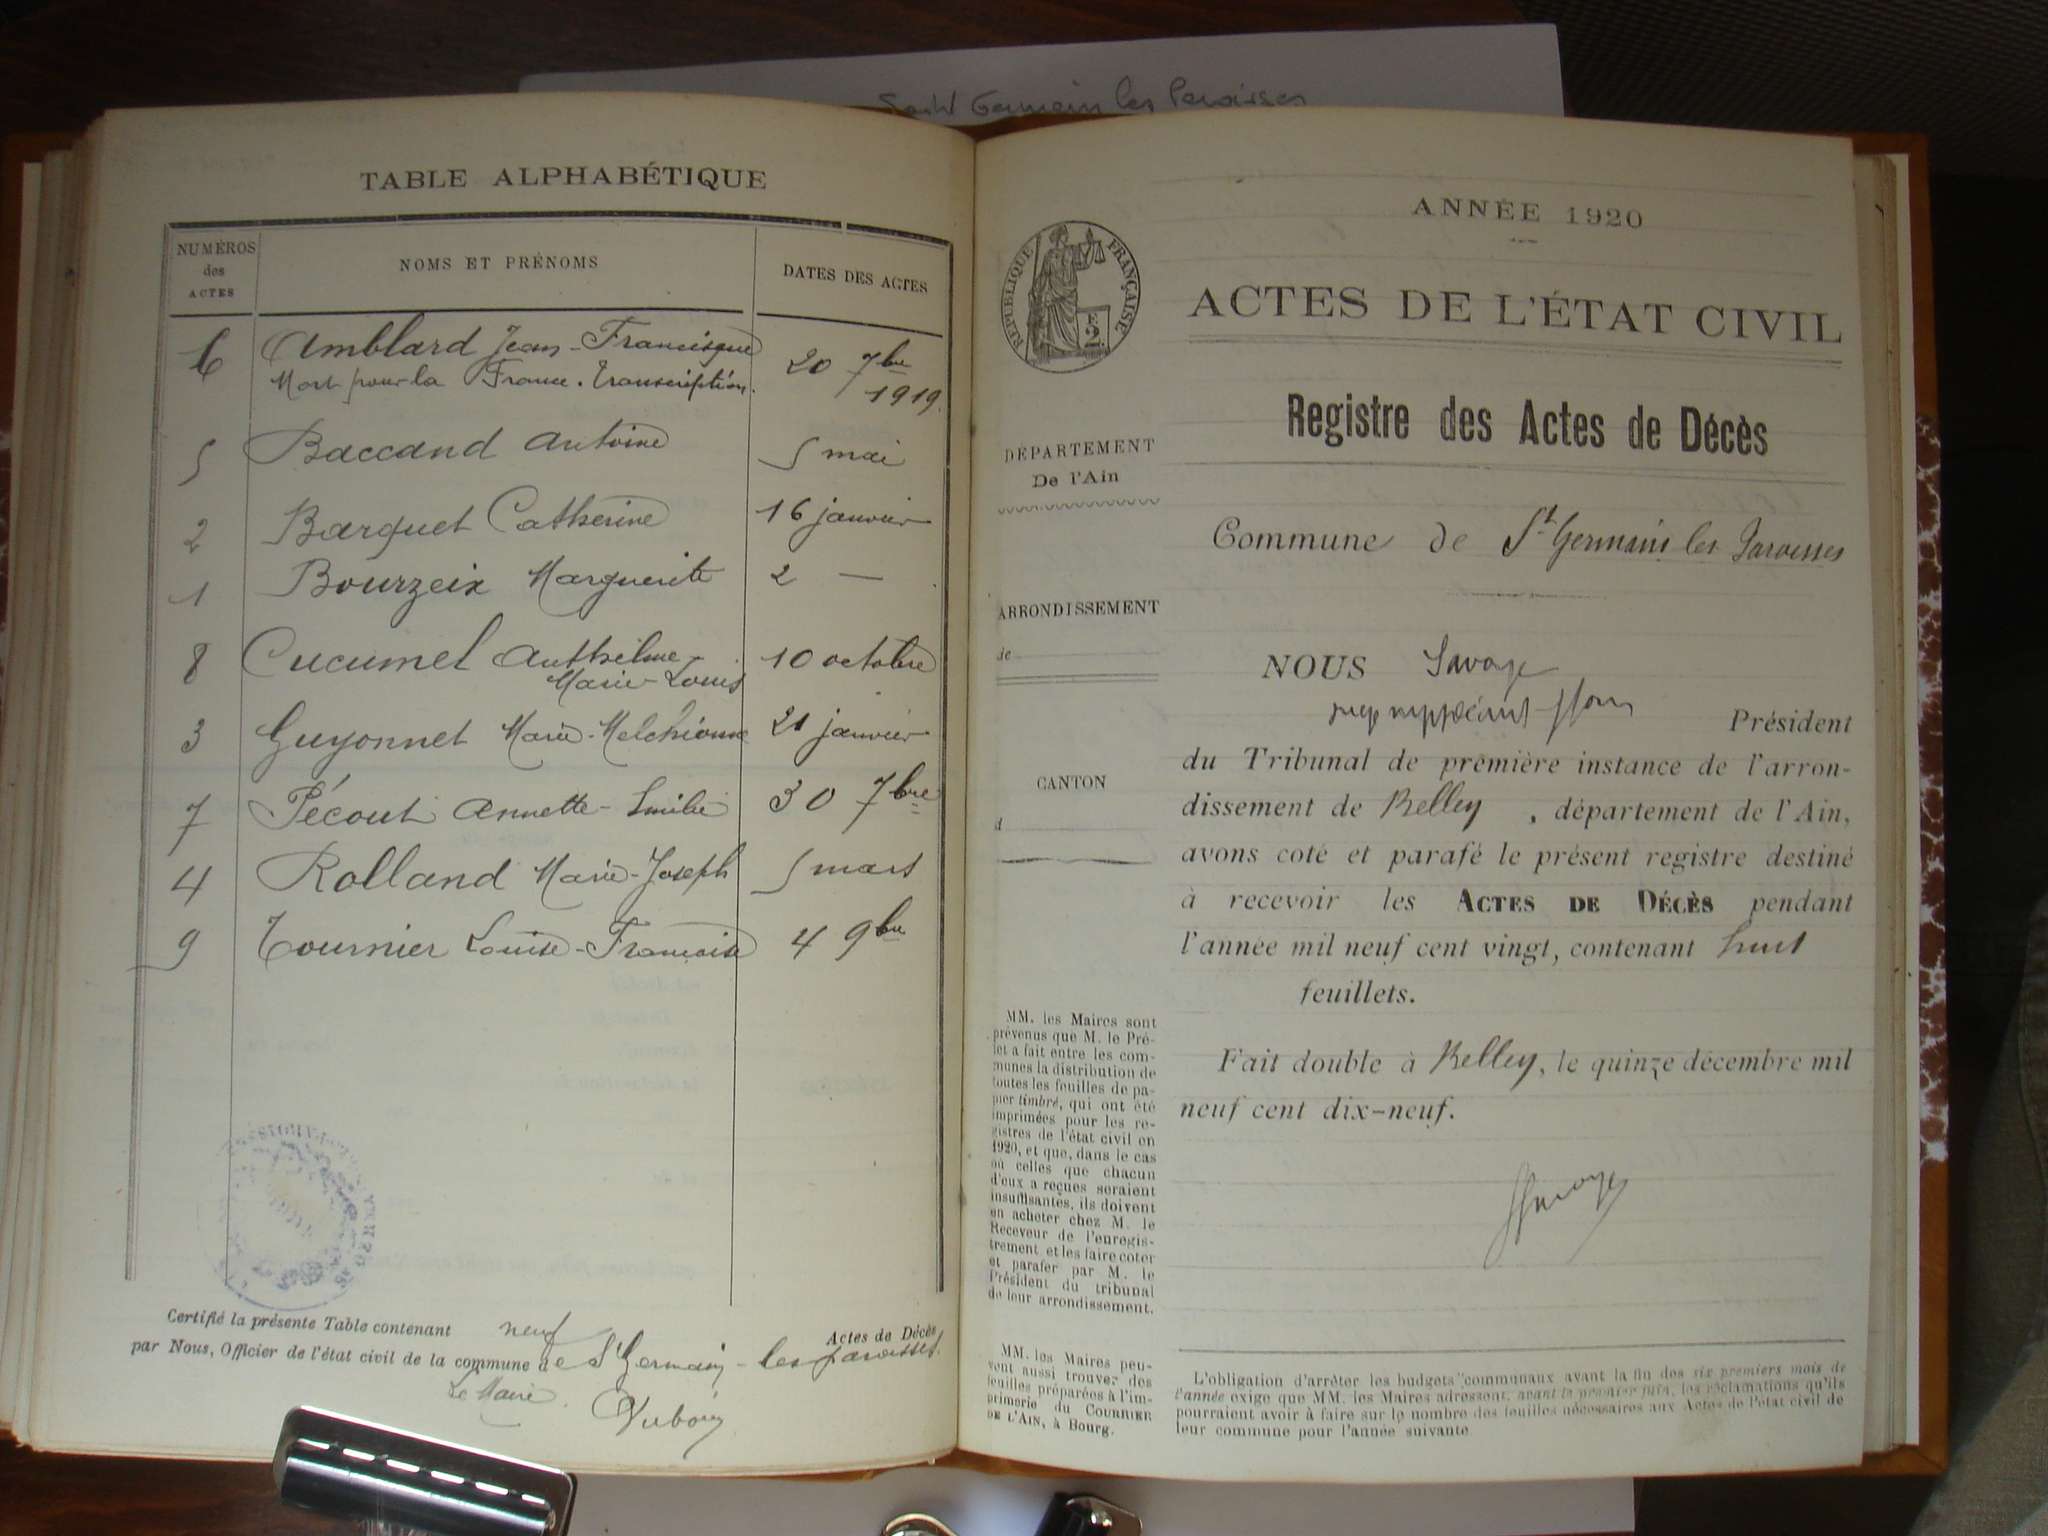 Saint Germain les Paroisses
TABLE ALPHABÉTIQUE
NUMÉROS des ACTES
NOMS ET PRÉNOMS
DATES DES ACTES
6 Amblard Jean-Francisque 20 7bre
Mort pour la France. Transcription. 1919.
5 Baccand Antoine 5 mai
2 Barquet Catherine 16 janvier
1 Bourzeix Marguerite 2 —
8 Cucumel Anthelme- 10 octobre
Marie-Louis
3 Guyonnet Marie-Melchionne 21 janvier
7 Pécout Annette-Emilie 30 7bre
4 Rolland Marie-Joseph 5 mars
9 Tournier Louise-Françoise 4 9bre
Certifié la présente Table contenant neuf Actes de Décès
par Nous, Officier de l'état civil de la commune de St Germain-les paroisses.
Le Maire.
Dubois
ANNÉE 1920
RÉPUBLIQUE FRANÇAISE
E
2
ACTES DE L'ÉTAT CIVIL
Registre des Actes de Décès
DÉPARTEMENT
De l'Ain
Commune de St Germain les Paroisses
ARRONDISSEMENT
de
NOUS Savoye
juge suppléant ffons Président
du Tribunal de première instance de l'arron-
CANTON
d
dissement de Belley, département de l'Ain,
avons coté et parafé le présent registre destiné
à recevoir les ACTES DE DÉCÈS pendant
l'année mil neuf cent vingt, contenant huit
feuillets.
Fait double à Belley, le quinze décembre mil
neuf cent dix-neuf.
Savoye
MM. les Maires sont
prévenus que M. le Pré-
fet a fait entre les com-
munes la distribution de
toutes les feuilles de pa-
pier timbré, qui ont été
imprimées pour les re-
gistres de l'état civil en
1920, et que, dans le cas
où celles que chacun
d'eux a reçues seraient
insuffisantes, ils doivent
en acheter chez M. le
Receveur de l'enregis-
trement et les faire coter
et parafer par M. le
Président du tribunal
de leur arrondissement.
MM. les Maires peu-
vent aussi trouver des
feuilles préparées à l'im-
primerie du COURRIER
DE L'AIN, à Bourg.
L'obligation d'arrêter les budgets communaux avant la fin des six premiers mois de
l'année exige que MM. les Maires adressent, avant le premier juin, les réclamations qu'ils
pourraient avoir à faire sur le nombre des feuilles nécessaires aux Actes de l'état civil de
leur commune pour l'année suivante